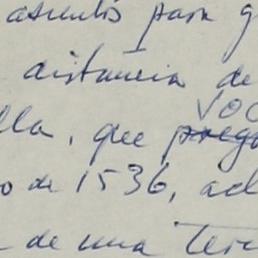 asuntos para q
distancia de
voc
lla, que prego
o de 1536, ad
de una Terc